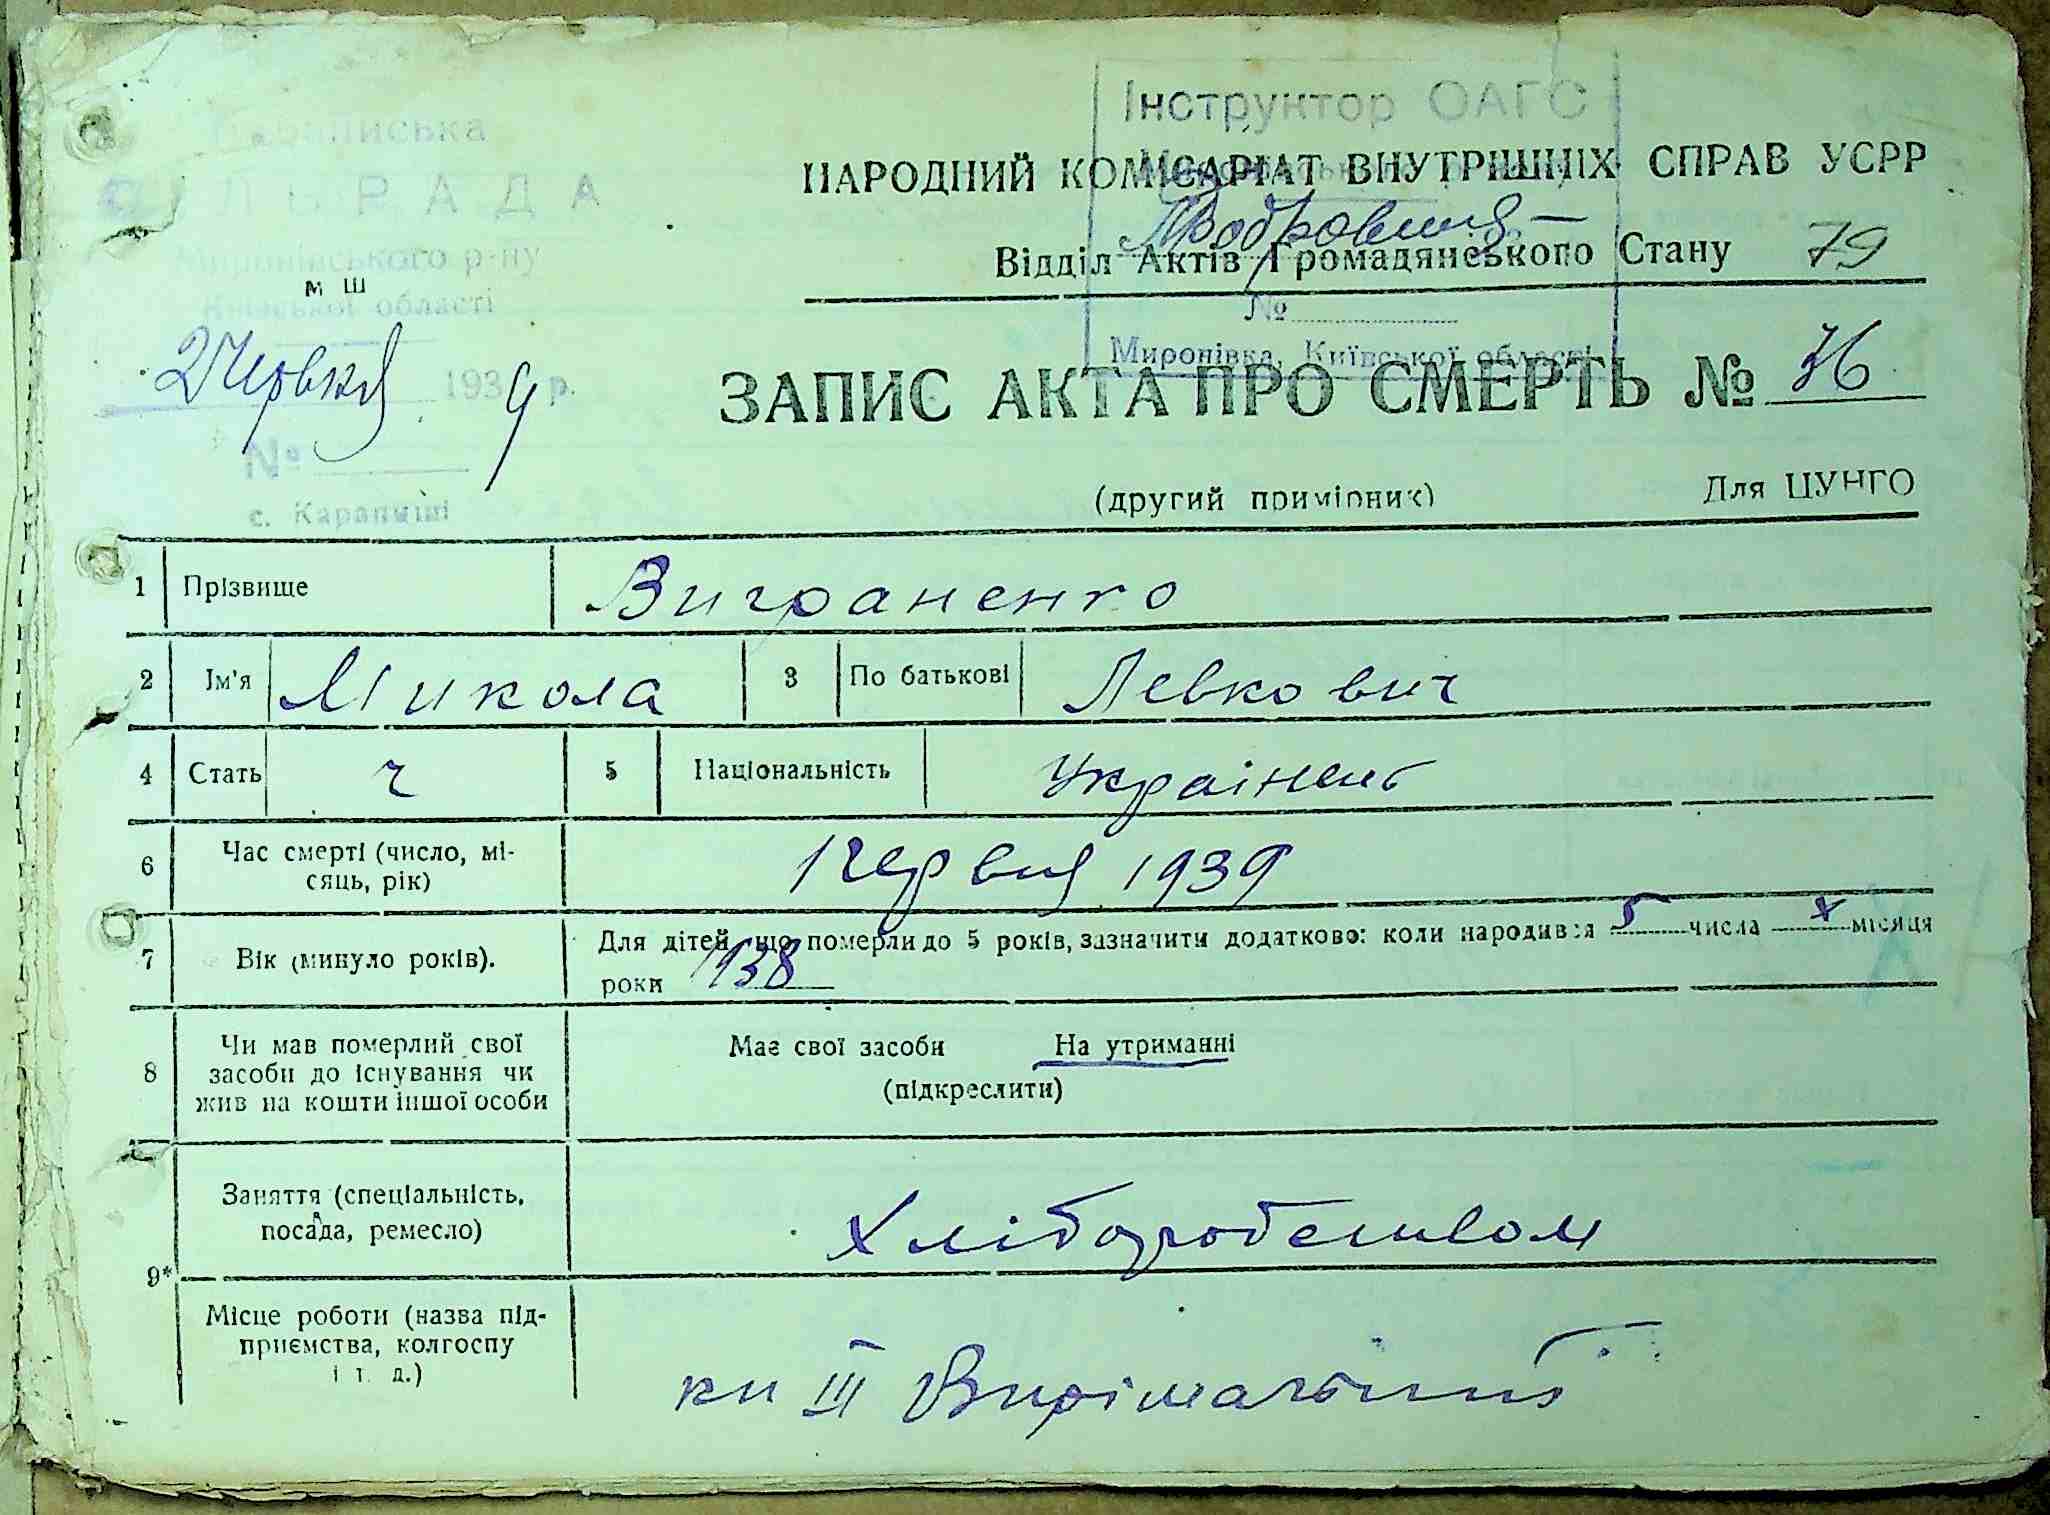 Інструктор ОАГС
НАРОДНИЙ КОМІСАРІАТ ВНУТРІШНІХ СПРАВ УСРР
РАДА
Миронівського р-ну
Відділ Актів Громадянського Стану 79
м ш
Київської області
№
Миронівка, Київської області
2 Червня 1939 р.
ЗАПИС АКТА ПРО СМЕРТЬ № 36
№
(другий примірник) Для ЦУНГО
с. Карапиші
1 Прізвище Виграненко
2 Ім'я Микола 3 По батькові Левкович
4 Стать ч 5 Національність Українець
6 Час смерті (число, мі-
сяць, рік) 1 червня 1939
7 Вік (минуло років). Для дітей, що померли до 5 років, зазначити додатково: коли народився 5 числа X місяця
роки 1938
8 Чи мав померлий свої
засоби до існування чи
жив на кошти іншої особи
Має свої засоби На утриманні
(підкреслити)
Заняття (спеціальність,
посада, ремесло) Хліборобством
9*
Місце роботи (назва під-
приємства, колгоспу
і т. д.)
III